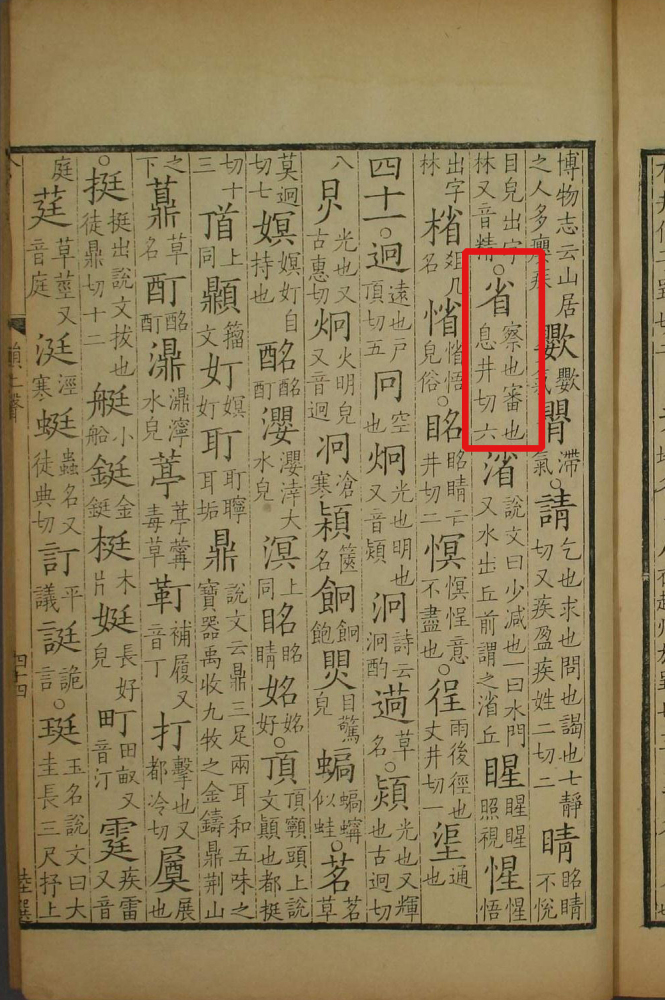 博物志云山居之人多癭疾 㼆氣 滯氣○請乞也求也問也謁也七靜切又疾盈疾姓二切二睛眳睛不悅
目皃出字林又音精○省察也審也息井切六渻說文曰少減也一曰水門又水出丘前謂之渻丘睲睲睲照視惺惺悟
出字林㮐俎几名㥠㥠悟皃俗○眳眳睛亡井切二慏慏悜意不盡也○徎雨後徑也丈井切一浧通也
四十一○迥遠也戶頂切五冋空也炯光也明也又音熲泂詩云泂酌䓳草名○熲光也又輝也古迥切
八炅光也又古惠切烱火明皃又音迥泂滄寒篋名飽煚目驚皃似蛙○茗茗草
莫迥切七嫇嫇奵自持也酩酩酊瀴瀴涬大水皃溟上同眳眳睛姳姳好○頂頂𩕳頭上說文顛也都挺
切十三𩠑上同籀文奵嫇奵耵耵聹耳垢鼎說文云鼎三足兩耳和五味之寶器禹收九牧之金鑄鼎荊山
之下薡草名酊酩酊濎濎濘水皃葶葶藶毒草靪補履又音丁打擊也又都冷切展也
○挺挺出說文拔也徒鼎切十二艇小船鋌金鋌梃木片娗長好皃町田畝又音汀霆疾雷又音
庭莛草莖又音庭涏涇寒蜓蟲名又徒典切訂平議誔詭言○珽玉名說文曰大圭長三尺抒上
四十四